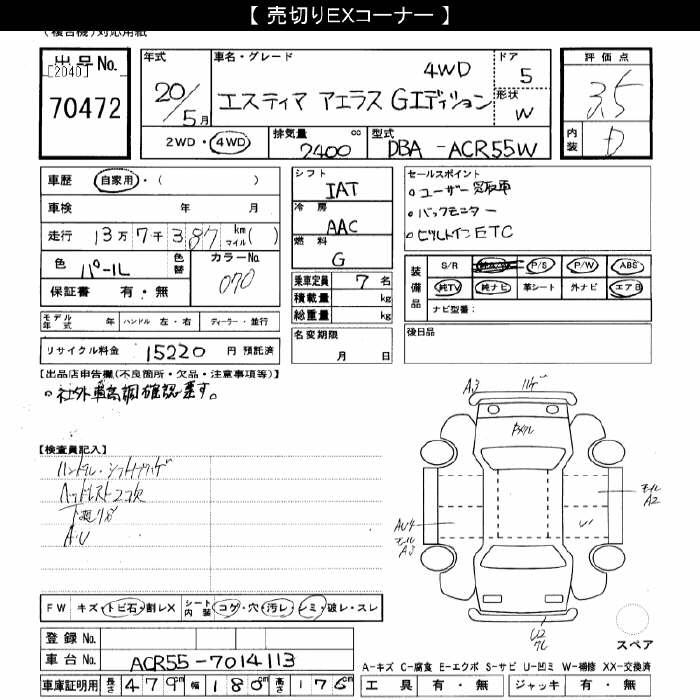 【 売切りEXコーナー 】
(複合機)対応用紙
出品No.
[2040]
70472
年式
20/5月
車名・グレード
4WD
エスティマ アエラス Gエディション
ドア
5
形状
W
評価点
3.5
内装
D
2WD・4WD
排気量 cc
2400
型式
DBA -ACR55W
車歴 自家用・( )
車検 年 月
走行 13万7千387 km マイル( )
色 パール 色替
カラーNo.
070
保証書 有・無
シフト
IAT
冷房
AAC
燃料
G
セールスポイント
。ユーザー買取車
。バックモニター
。ビルトインETC
装備品
S/R P/S P/W ABS
純TV 純ナビ 革シート 外ナビ エアB
ナビ型番:
乗車定員 7名
積載量 kg
総重量 kg
モデル年式 年 ハンドル 左・右 ディーラー・並行
名変期限
月 日
後日品
リサイクル料金 15220 円 預託済
【出品店申告欄(不良箇所・欠品・注意事項等)】
。社外車高調確認要す。
【検査員記入】
ハンドル・シフトノブハゲ
ヘッドレスト2コ欠
A・U
A3 ハゲ
AU4
モール
A3
モール
A2
U2
FW キズ・トビ石・割レX シート内装 コゲ・穴・汚レ・シミ・破レ・スレ
登録No.
車台No. ACR55-7014113
スペア
A-キズ C-腐食 E-エクボ S-サビ U-凹ミ W-補修 XX-交換済
車庫証明用 長さ 479cm 幅 180cm 高さ 176cm
工具 有・無 ジャッキ 有・無